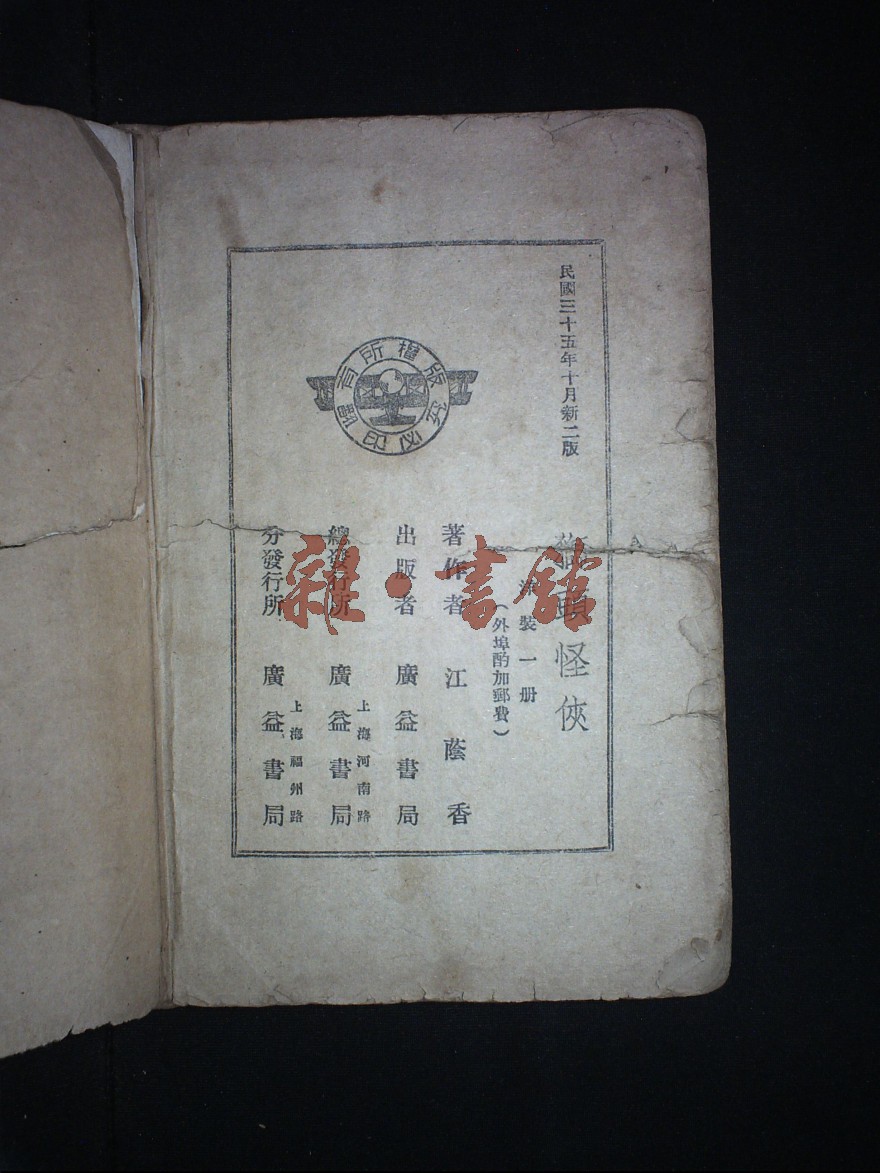 民國三十五年十月新二版
頭怪俠
裝一册
（外埠酌加郵費）
著作者 江蔭香
出版者 廣益書局
總發行所 上海河南路 廣益書局
分發行所 上海福州路 廣益書局
版權所有
翻印必究
雜·書館